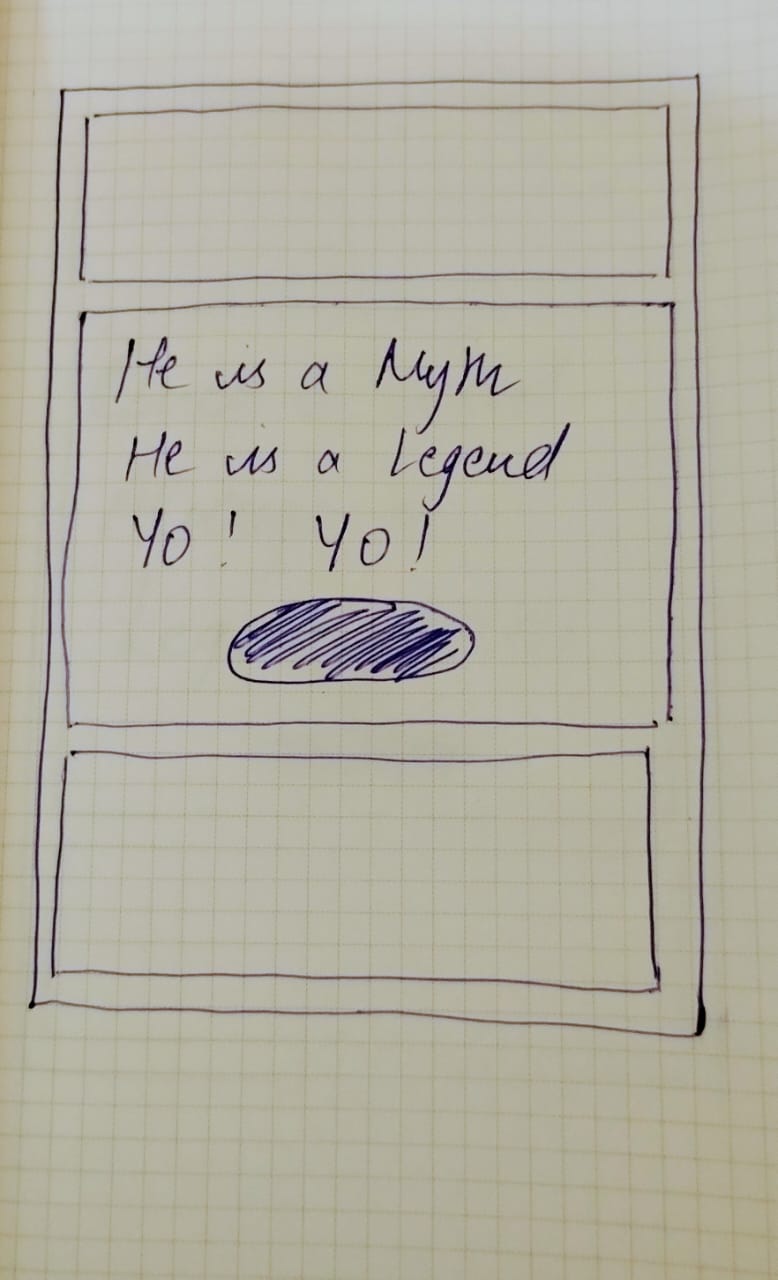 He is a Myth
He is a Legend
Yo! Yo!